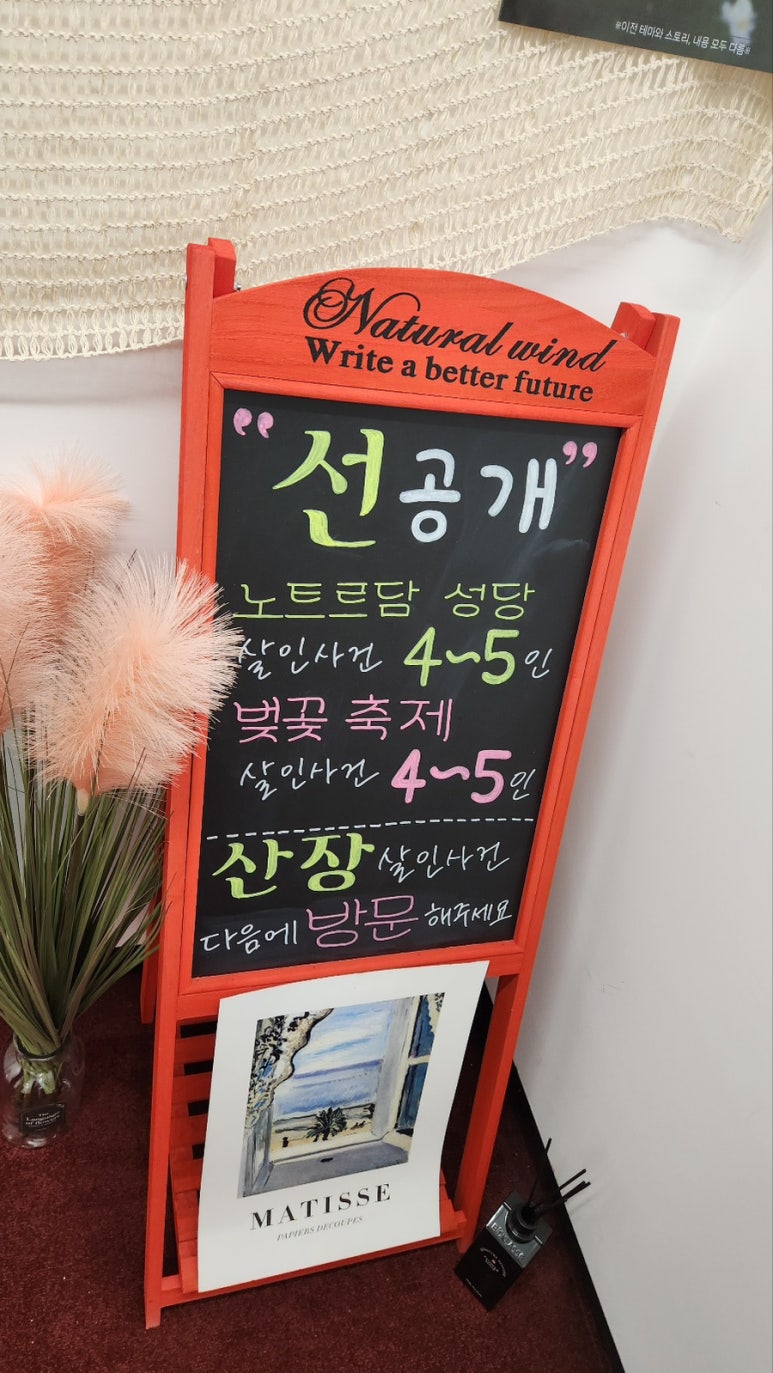 ※이전 테마와 스토리, 내용 모두 다름※
Natural wind
Write a better future
“선공개”
노트르담 성당
살인사건 4~5인
벚꽃 축제
살인사건 4~5인
산장 살인사건
다음에 방문 해주세요
MATISSE
PAPIERS DECOUPES
The
Language
of flowers